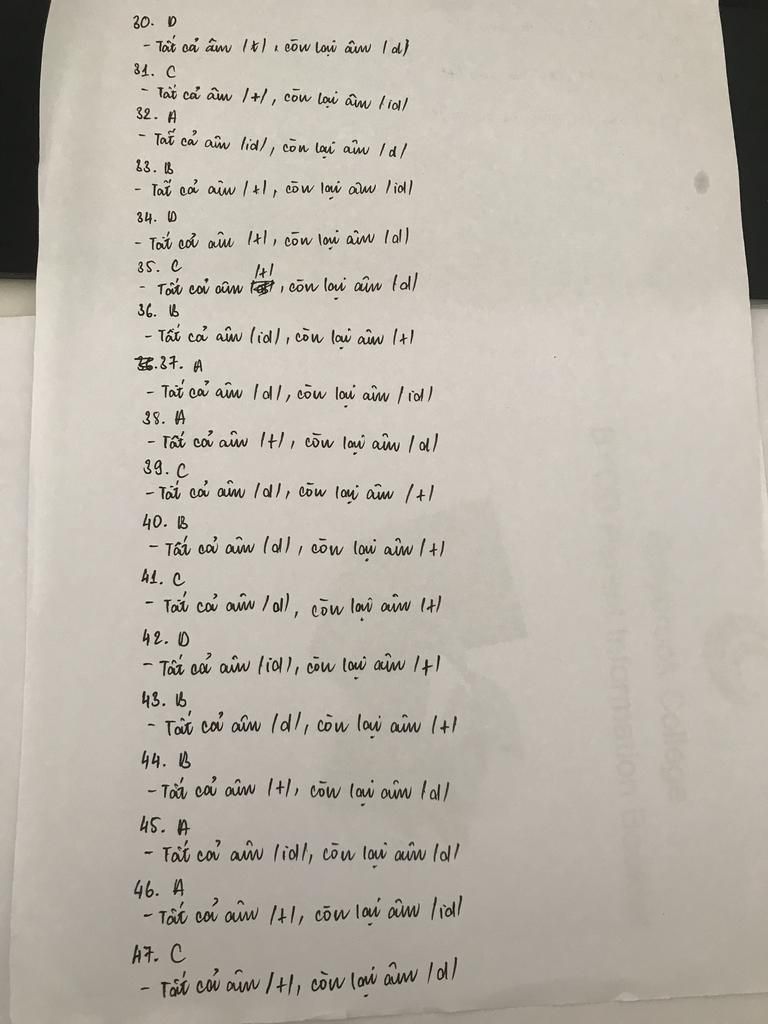 30. D
- Tất cả âm /t/, còn lại âm /d/
31. C
- Tất cả âm /t/, còn lại âm /id/
32. A
- Tất cả âm /id/, còn lại âm /d/
33. B
- Tất cả âm /t/, còn lại âm /id/
34. D
- Tất cả âm /t/, còn lại âm /d/
35. C
- Tất cả âm /t/, còn lại âm /d/
36. B
- Tất cả âm /id/, còn lại âm /t/
37. A
- Tất cả âm /d/, còn lại âm /id/
38. A
- Tất cả âm /t/, còn lại âm /d/
39. C
- Tất cả âm /d/, còn lại âm /t/
40. B
- Tất cả âm /d/, còn lại âm /t/
41. C
- Tất cả âm /d/, còn lại âm /t/
42. D
- Tất cả âm /id/, còn lại âm /t/
43. B
- Tất cả âm /d/, còn lại âm /t/
44. B
- Tất cả âm /t/, còn lại âm /d/
45. A
- Tất cả âm /id/, còn lại âm /d/
46. A
- Tất cả âm /t/, còn lại âm /id/
47. C
- Tất cả âm /t/, còn lại âm /d/